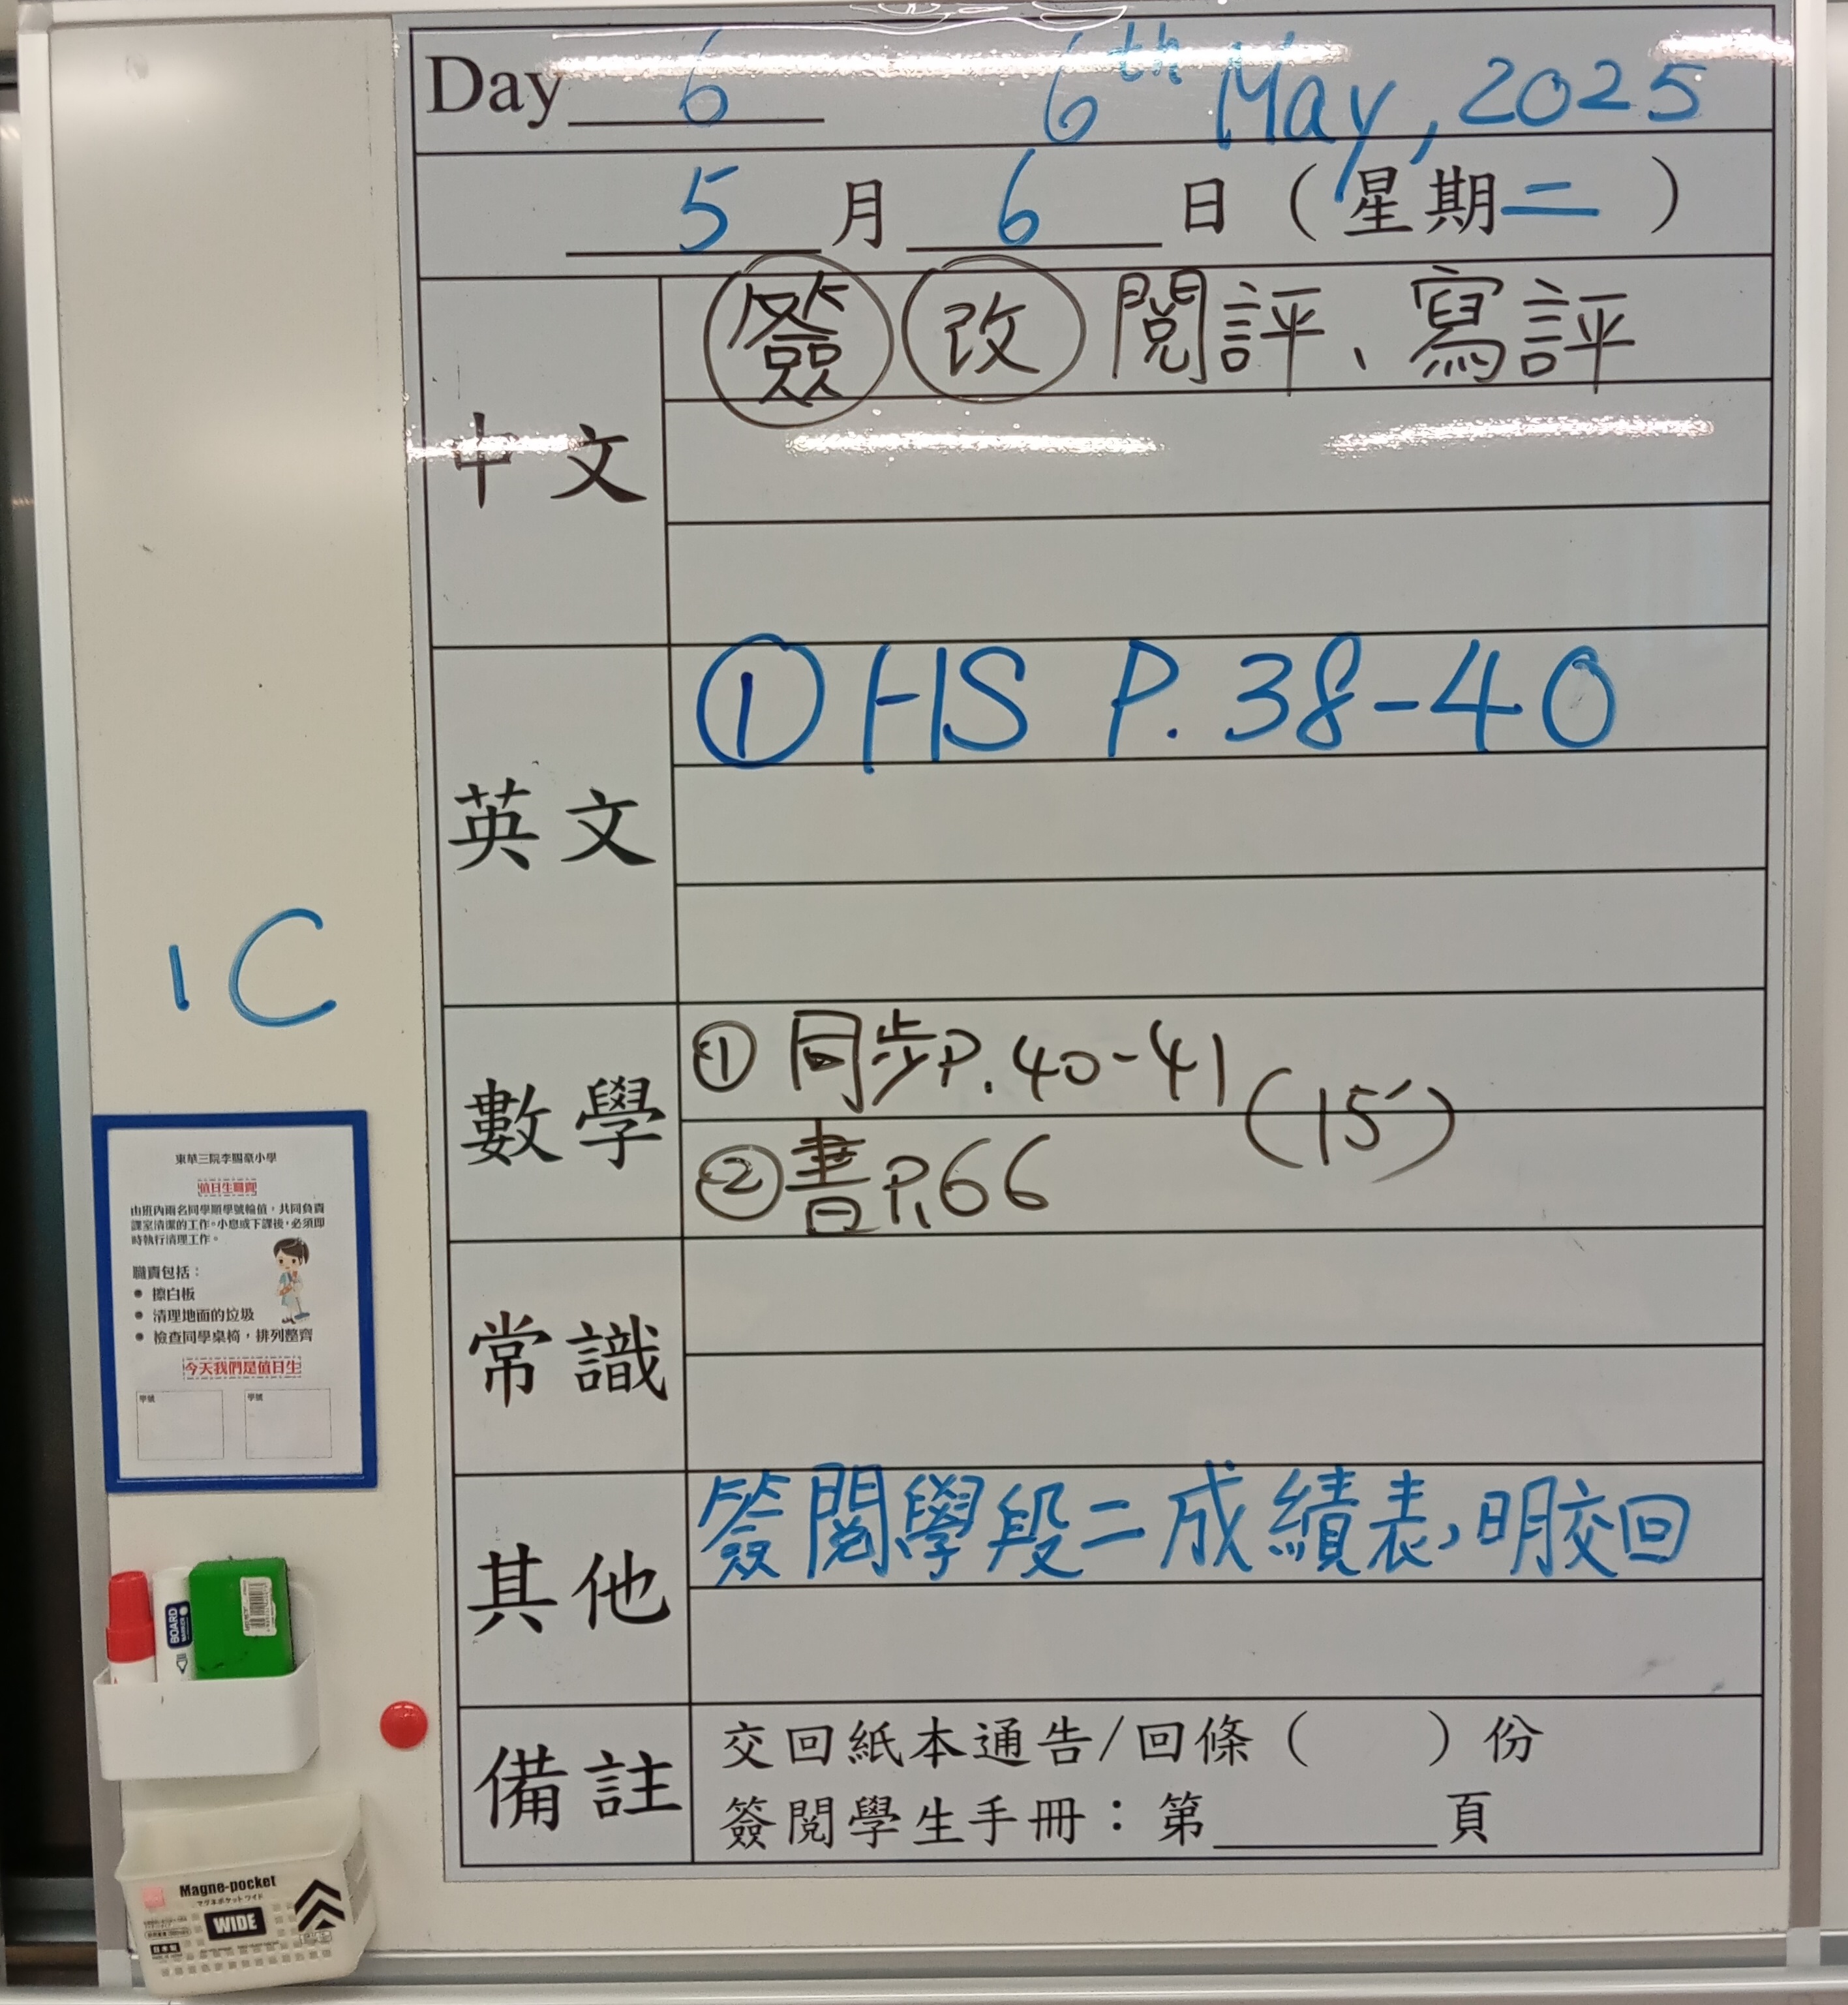 Day 6 6th May, 2025
5月6日（星期二）
中文
簽 改 閱評、寫評
英文
① HS P. 38-40
數學
① 同步P.40-41
(15')
② 書P.66
常識
其他
簽閱學段二成績表,明交回
備註
交回紙本通告/回條（ ）份
簽閱學生手冊：第______頁
1C
東華三院李賜豪小學
值日生職責
由班內兩名同學順學號輪值，共同負責
課室清潔的工作。小息或下課後，必須即
時執行清理工作。
職責包括：
● 擦白板
● 清理地面的垃圾
● 檢查同學桌椅，排列整齊
今天我們是值日生
學號 學號
BOARD
MARKER
Magne-pocket
マグネポケット ワイド
WIDE